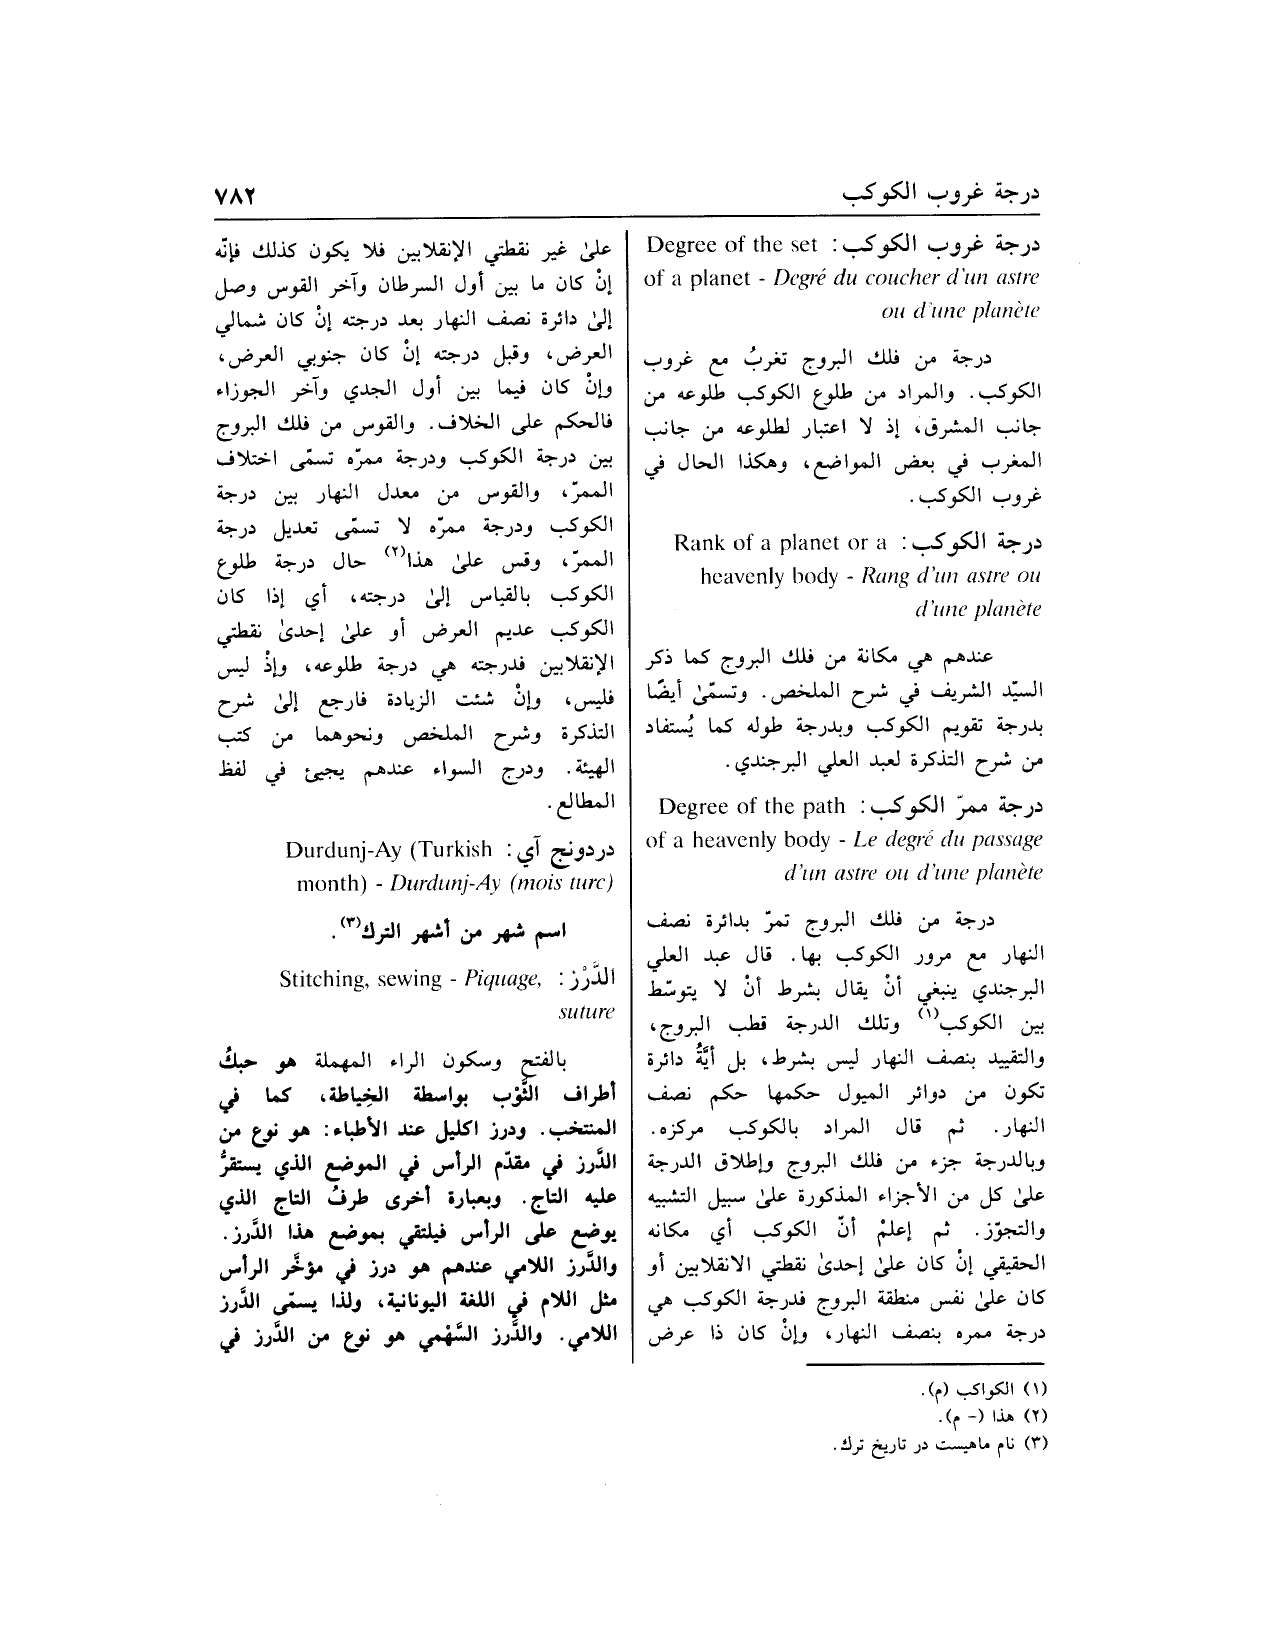 درجة غروب الكوكب
٧٨٢
درجة غروب الكوكب: Degree of the set
of a planet - Degré du coucher d'un astre
ou d'une planète
درجة من فلك البروج تغربُ مع غروب
الكوكب. والمراد من طلوع الكوكب طلوعه من
جانب المشرق، إذ لا اعتبار لطلوعه من جانب
المغرب في بعض المواضع، وهكذا الحال في
غروب الكوكب.
درجة الكوكب: Rank of a planet or a
heavenly body - Rang d'un astre ou
d'une planète
عندهم هي مكانة من فلك البروج كما ذكر
السيّد الشريف في شرح الملخص. وتسمّىٰ أيضًا
بدرجة تقويم الكوكب وبدرجة طوله كما يُستفاد
من شرح التذكرة لعبد العلي البرجندي.
درجة ممرّ الكوكب: Degree of the path
of a heavenly body - Le degré du passage
d'un astre ou d'une planète
درجة من فلك البروج تمرّ بدائرة نصف
النهار مع مرور الكوكب بها. قال عبد العلي
البرجندي ينبغي أنْ يقال بشرط أنْ لا يتوسّط
بين الكوكب(١) وتلك الدرجة قطب البروج،
والتقييد بنصف النهار ليس بشرط، بل أيَّةُ دائرة
تكون من دوائر الميول حكمها حكم نصف
النهار. ثم قال المراد بالكوكب مركزه.
وبالدرجة جزء من فلك البروج وإطلاق الدرجة
علىٰ كل من الأجزاء المذكورة علىٰ سبيل التشبيه
والتجوّز. ثم إعلمْ أنّ الكوكب أي مكانه
الحقيقي إنْ كان علىٰ إحدىٰ نقطتي الانقلابين أو
كان علىٰ نفس منطقة البروج فدرجة الكوكب هي
درجة ممره بنصف النهار، وإنْ كان ذا عرض
علىٰ غير نقطتي الإنقلابين فلا يكون كذلك فإنّه
إنْ كان ما بين أول السرطان وآخر القوس وصل
إلىٰ دائرة نصف النهار بعد درجته إنْ كان شمالي
العرض، وقبل درجته إنْ كان جنوبي العرض،
وإنْ كان فيما بين أول الجدي وآخر الجوزاء
فالحكم على الخلاف. والقوس من فلك البروج
بين درجة الكوكب ودرجة ممرّه تسمّى اختلاف
الممرّ، والقوس من معدل النهار بين درجة
الكوكب ودرجة ممرّه لا تسمّى تعديل درجة
الممرّ، وقس علىٰ هذا(٢) حال درجة طلوع
الكوكب بالقياس إلىٰ درجته، أي إذا كان
الكوكب عديم العرض أو علىٰ إحدىٰ نقطتي
الإنقلابين فدرجته هي درجة طلوعه، وإذْ ليس
فليس، وإنْ شئت الزيادة فارجع إلىٰ شرح
التذكرة وشرح الملخص ونحوهما من كتب
الهيئة. ودرج السواء عندهم يجيئ في لفظ
المطالع.
دردونج آي: Durdunj-Ay (Turkish
month) - Durdunj-Ay (mois turc)
اسم شهر من أشهر الترك(٣).
الدَّرْز: Stitching, sewing - Piquage,
suture
بالفتح وسكون الراء المهملة هو حبكُ
أطراف الثَّوْب بواسطة الخِياطة، كما في
المنتخب. ودرز اكليل عند الأطباء: هو نوع من
الدَّرز في مقدّم الرأس في الموضع الذي يستقرُّ
عليه التاج. وبعبارة أخرى طرفُ التاج الذي
يوضع على الرأس فيلتقي بموضع هذا الدَّرز.
والدَّرز اللامي عندهم هو درز في مؤخَّر الرأس
مثل اللام في اللغة اليونانية، ولذا يسمّى الدَّرز
اللامي. والدَّرز السَّهْمي هو نوع من الدَّرز في
(١) الكواكب (م).
(٢) هذا (- م).
(٣) نام ماهيست در تاريخ ترك.